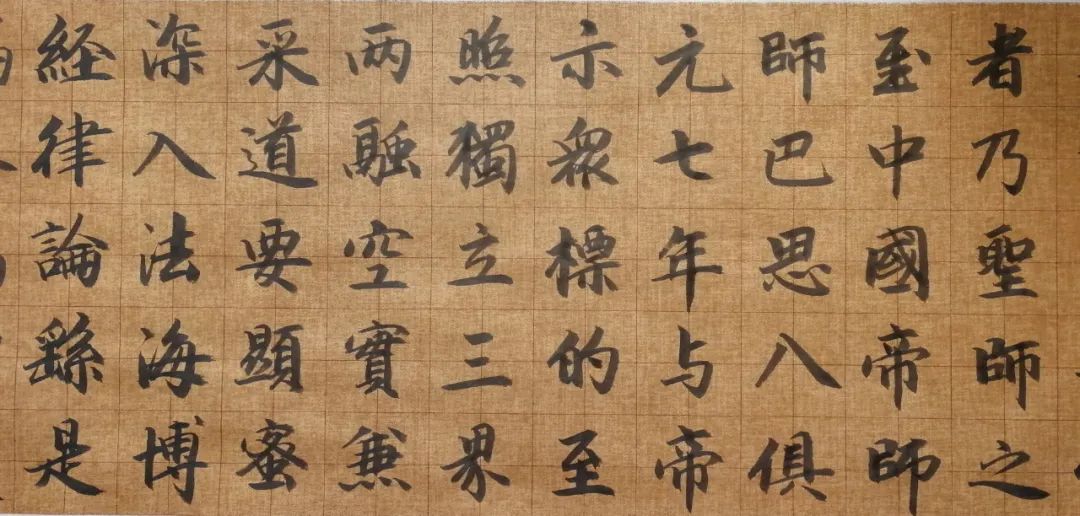 経律論繇是
深入法海博
采道要顕蜜
两融空實兼
照獨立三界
示衆標的至
元七年与帝
師巴思八俱
至中國帝師
者乃聖師之